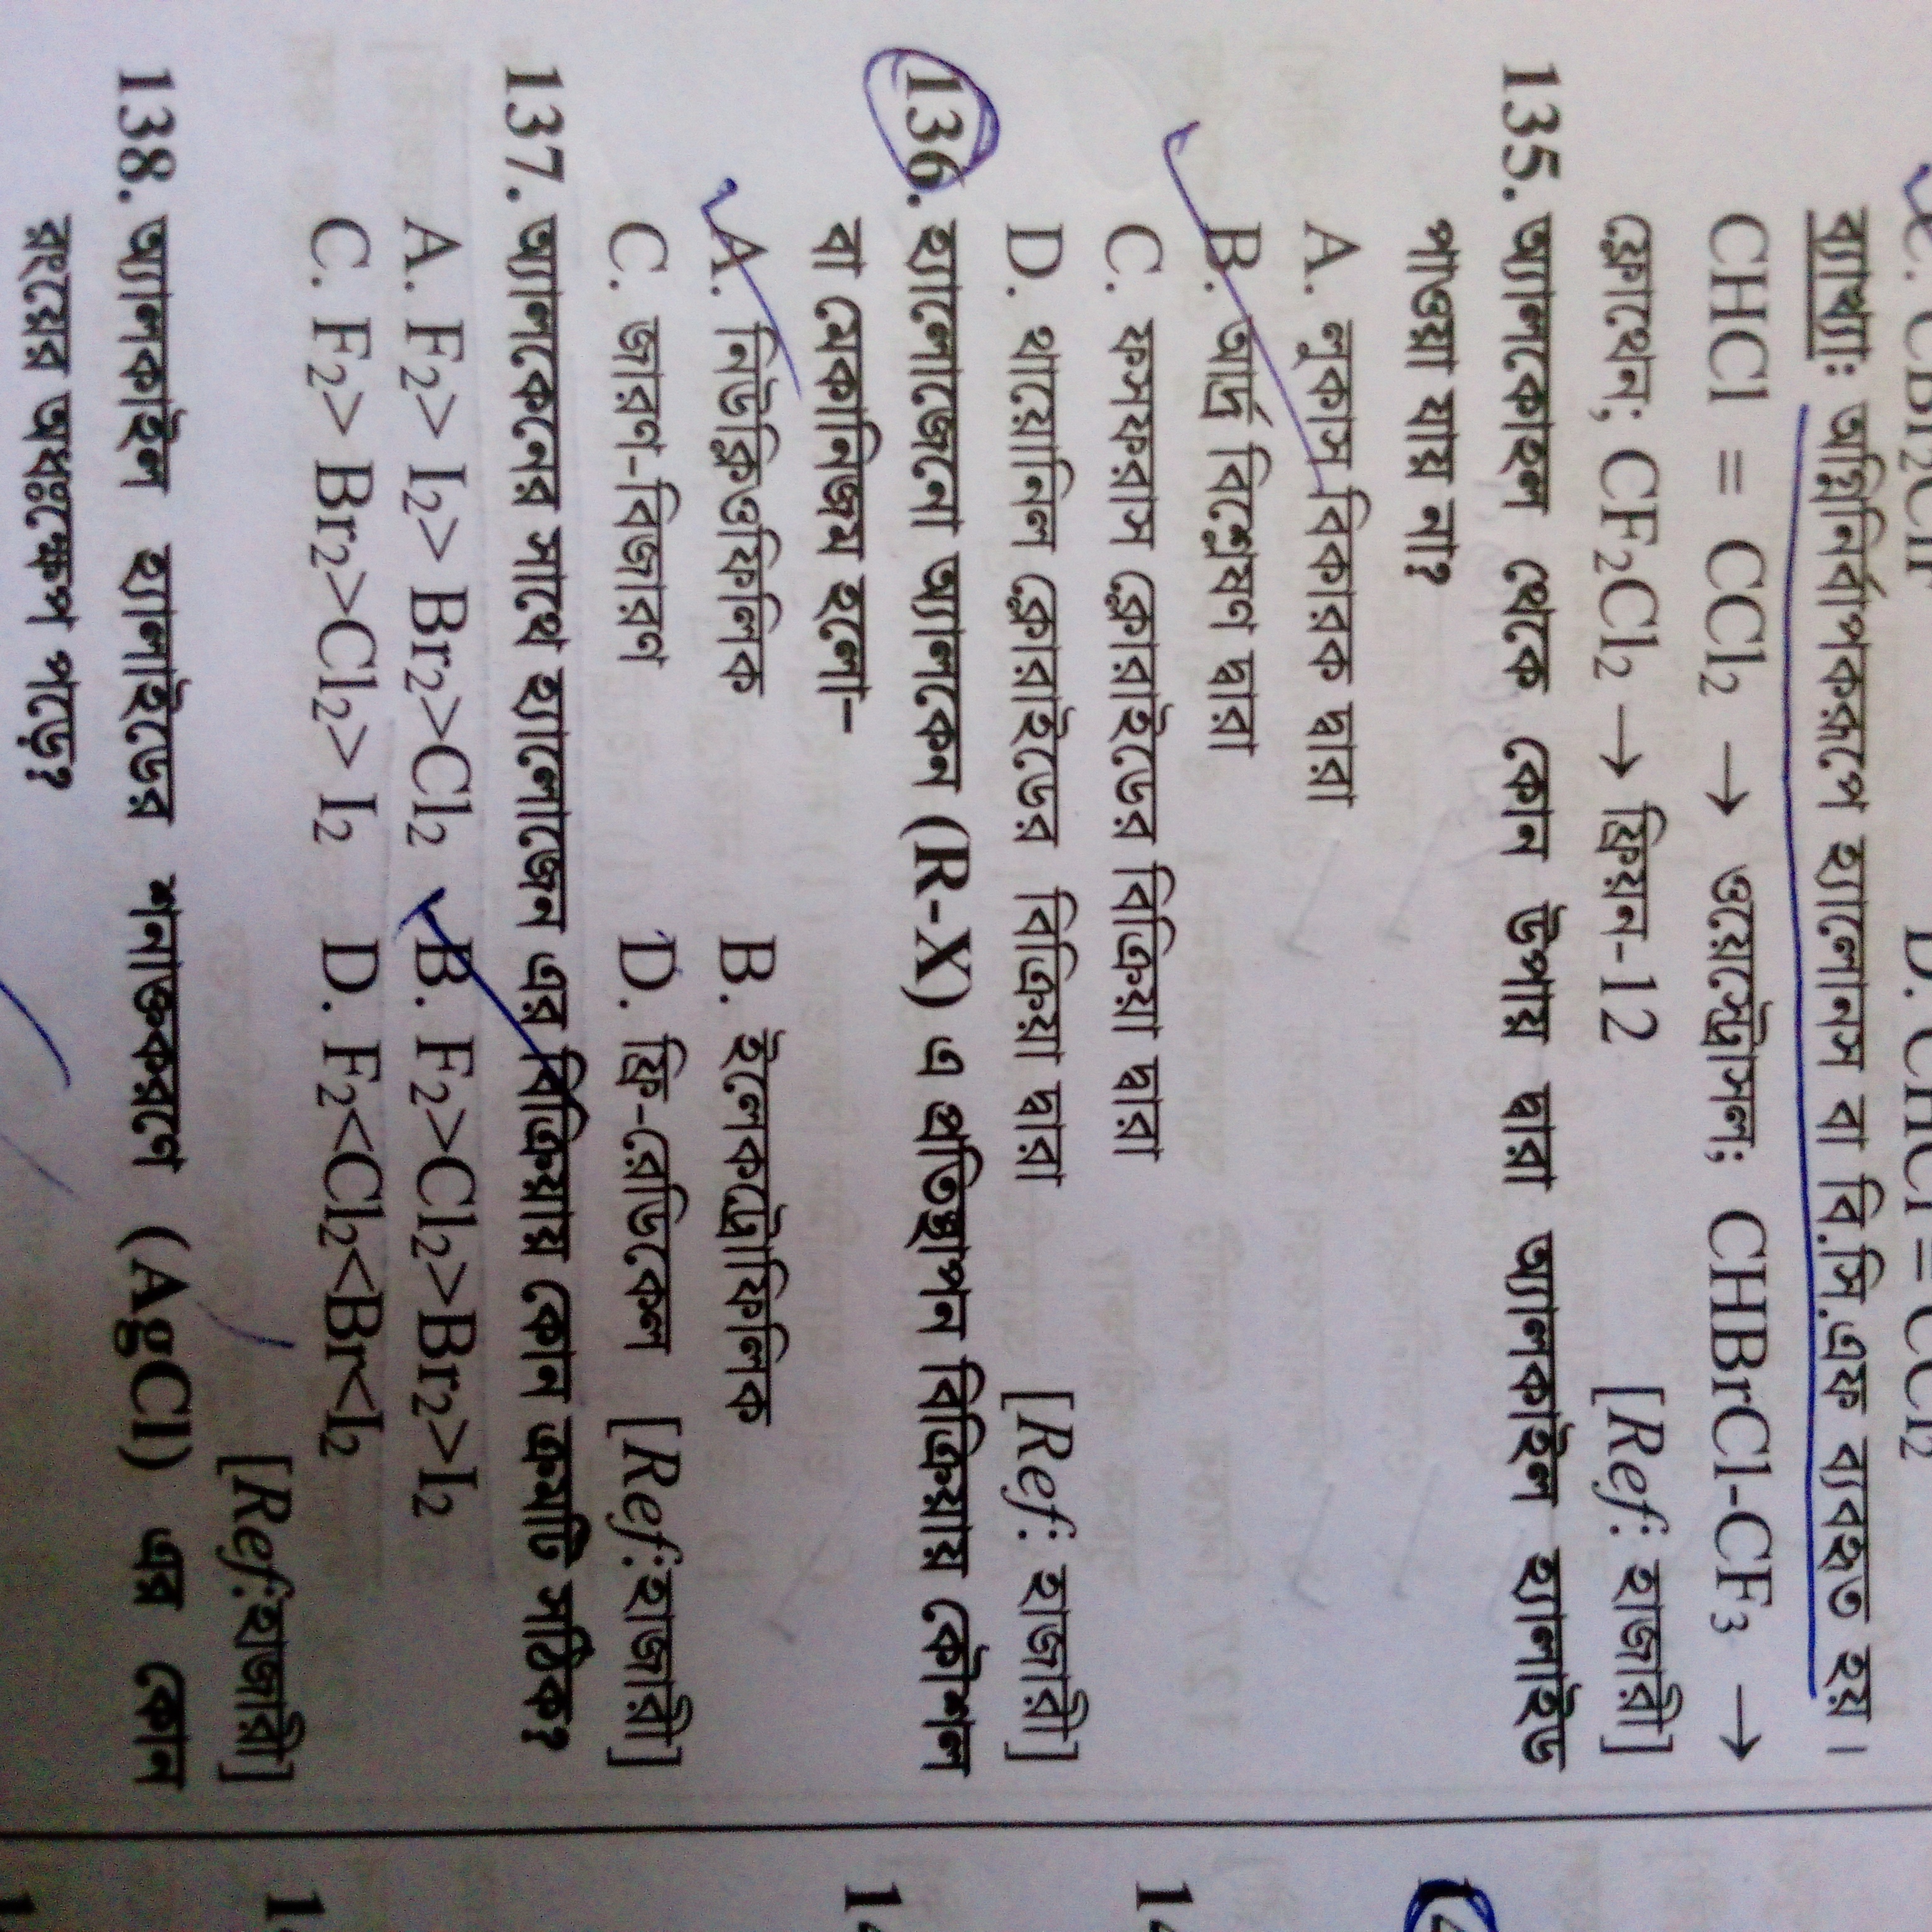 D. CHCl = CCl₂
ব্যাখ্যাঃ অগ্নিনির্বাপকরূপে হ্যালোনস বা বি.সি.এফ ব্যবহৃত হয়।
CHCl = CCl₂ → ওয়েস্ট্রোসল; CHBrCl-CF₃ →
ফ্লোথেন; CF₂Cl₂ → ফ্রিয়ন-12 [Ref: হাজারী]
135. অ্যালকোহল থেকে কোন উপায় দ্বারা অ্যালকাইল হ্যালাইড
পাওয়া যায় না?
A. লুকাস বিকারক দ্বারা
B. আর্দ্র বিশ্লেষণ দ্বারা
C. ফসফরাস ক্লোরাইডের বিক্রিয়া দ্বারা
D. থায়োনিল ক্লোরাইডের বিক্রিয়া দ্বারা [Ref: হাজারী]
136. হ্যালোজেনো অ্যালকেন (R-X) এ প্রতিস্থাপন বিক্রিয়ায় কৌশল
বা মেকানিজম হলো-
A. নিউক্লিওফিলিক B. ইলেকট্রোফিলিক
C. জারণ-বিজারণ D. ফ্রি-রেডিকেল [Ref:হাজারী]
137. অ্যালকেনের সাথে হ্যালোজেন এর বিক্রিয়ায় কোন ক্রমটি সঠিক?
A. F₂> I₂> Br₂>Cl₂ B. F₂>Cl₂>Br₂>I₂
C. F₂> Br₂>Cl₂> I₂ D. F₂<Cl₂<Br<I₂
[Ref:হাজারী]
138. অ্যালকাইল হ্যালাইডের শনাক্তকরণে (AgCl) এর কোন
রংয়ের অধঃক্ষেপ পড়ে?